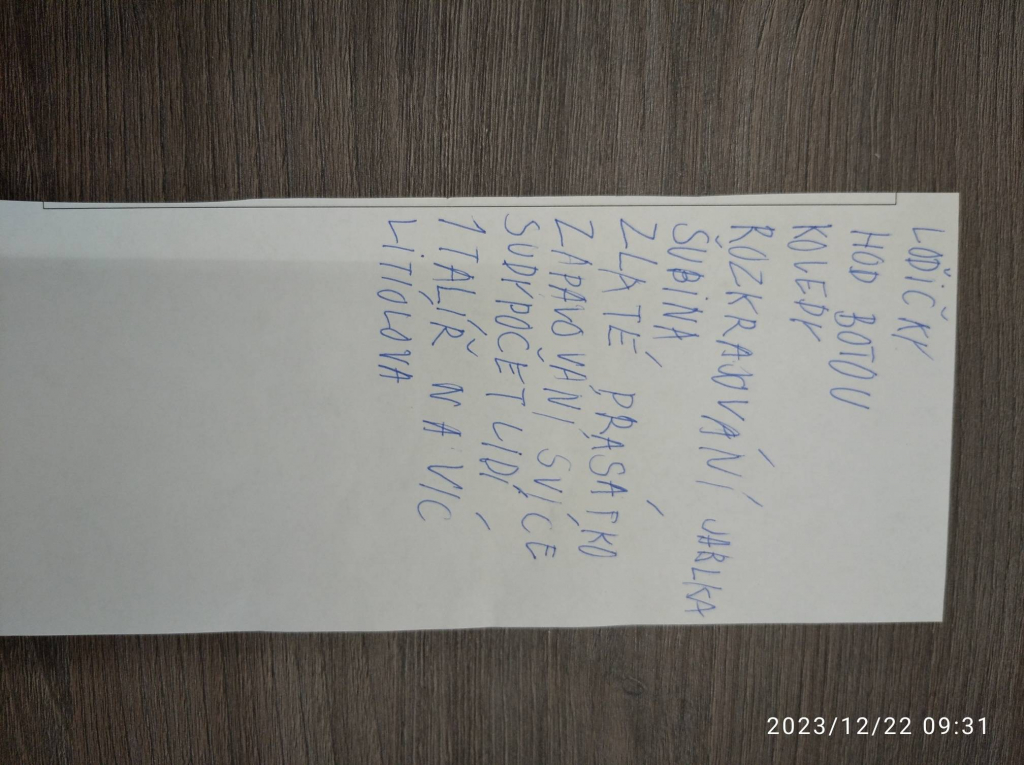 LODIČKY
HOD BOTOU
KOLEDY
ROZKRAJOVÁNÍ JABLKA
ŠUBINA
ZLATÉ PRASÁTKO
ZAPALOVÁNÍ SVÍCE
SUDÝ POČET LIDÍ
1 TALÍŘ NAVÍC
LITÍ OLOVA
2023/12/22 09:31